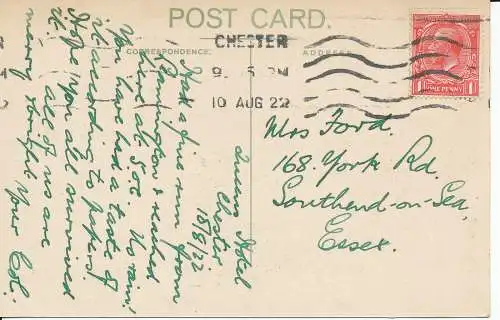 POST CARD.
CORRESPONDENCE.
ADDRESS.
CHESTER
9. 5 PM
10 AUG 22
ONE PENNY
Queens Hotel
Chester
18/8/22
Had a fine run from
Leamington & reached
here at 5.0c. No rain!
You have had a taste of
it according to papers!
Hope you all survived
it. all of us are
merry & bright
Your Col.
Mrs Ford.
168. York Rd.
Southend-on-Sea,
Essex.